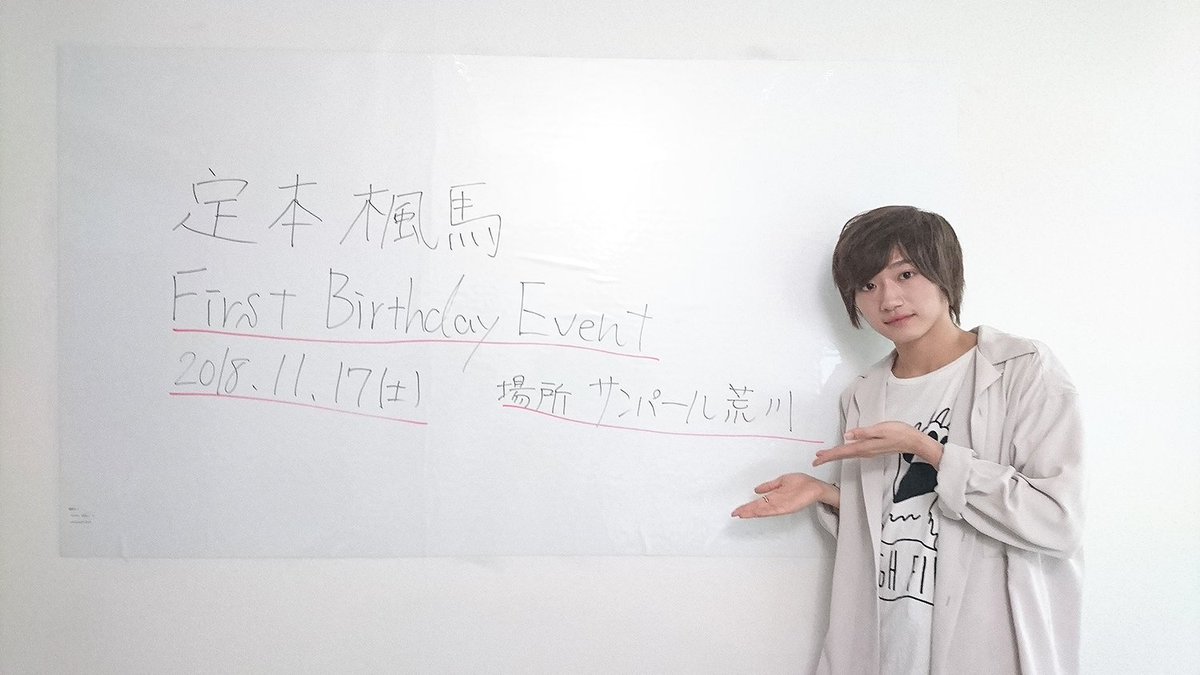 定本楓馬
First Birthday Event
2018.11.17(土) 場所 サンパール荒川
GH FI